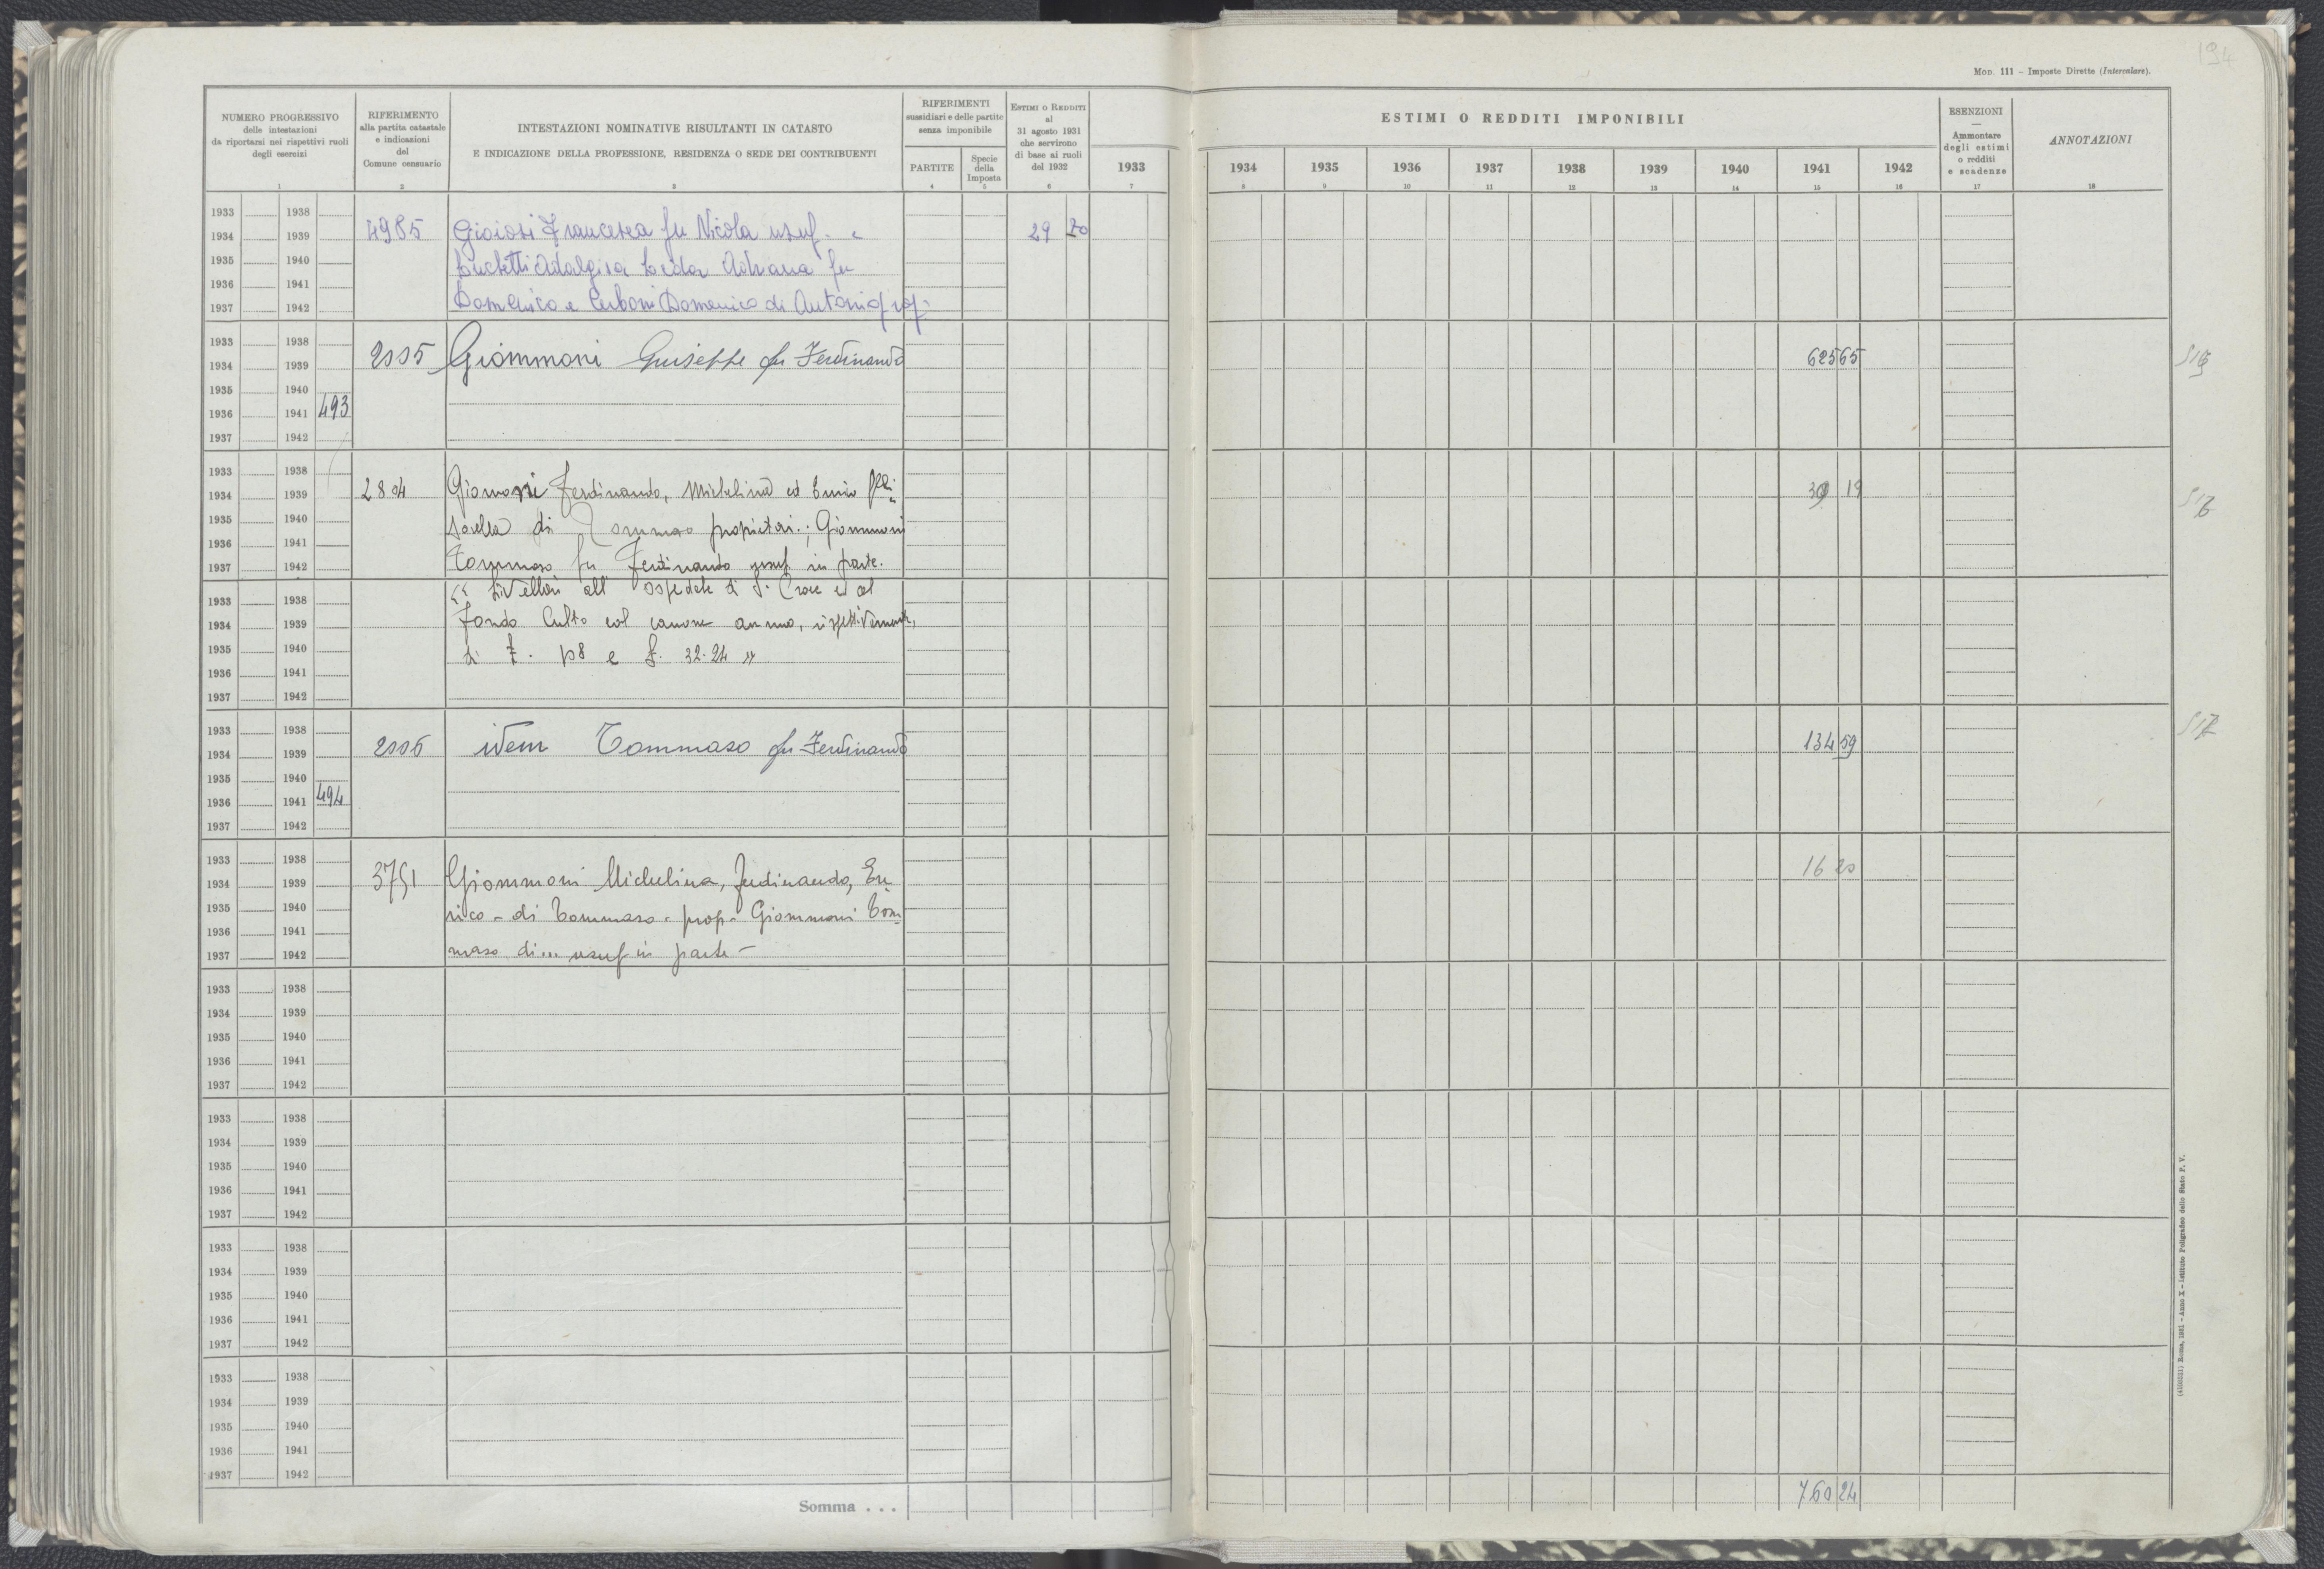 194
MOD. 111 – Imposte Dirette (Intercalare).
NUMERO PROGRESSIVO
delle intestazioni
da riportarsi nei rispettivi ruoli
degli esercizi
1
RIFERIMENTO
alla partita catastale
e indicazioni
del
Comune censuario
2
INTESTAZIONI NOMINATIVE RISULTANTI IN CATASTO
E INDICAZIONE DELLA PROFESSIONE, RESIDENZA O SEDE DEI CONTRIBUENTI
3
RIFERIMENTI
sussidiari e delle partite
senza imponibile
PARTITE
4
Specie
della
Imposta
5
ESTIMI O REDDITI
al
31 agosto 1931
che servirono
di base ai ruoli
del 1932
6
1933
7
ESTIMI O REDDITI IMPONIBILI
1934 1935 1936 1937 1938 1939 1940 1941 1942
8 9 10 11 12 13 14 15 16
ESENZIONI
—
Ammontare
degli estimi
o redditi
e scadenze
17
ANNOTAZIONI
18
1933 1938
1934 1939 4985 Gioiosi Francesca fu Nicola usuf. e 29 70
1935 1940 Luchetti Adalgisa Leda Adriana fu
1936 1941
1937 1942 Domenico e Cerboni Domenico di Antonio prop.
1933 1938
1934 1939 2005 Giommoni Giuseppe fu Ferdinando 625 65 515
1935 1940
1936 1941 493
1937 1942
1933 1938
1934 1939 2804 Giomoni Ferdinando, Michelina ed 19 516
1935 1940 sorella di Tommaso proprietari.; Giommoni
1936 1941
1937 1942 Tommaso fu Ferdinando usuf. in parte.
1933 1938 "Livellari all' Ospedale di S. Croce ed al
1934 1939 Fondo Culto col canone annuo, rispettivamente,
1935 1940 di £. e £. 32.24 "
1936 1941
1937 1942
1933 1938
1934 1939 2006 idem Tommaso fu Ferdinando 134 59 517
1935 1940
1936 1941 494
1937 1942
1933 1938
1934 1939 3751 Giommoni Michelina, Ferdinando, En 16 20
1935 1940 rico - di Tommaso - prop - Giommoni Tom
1936 1941
1937 1942 maso di... usuf in parte -
1933 1938
1934 1939
1935 1940
1936 1941
1937 1942
1933 1938
1934 1939
1935 1940
1936 1941
1937 1942
1933 1938
1934 1939
1935 1940
1936 1941
1937 1942
1933 1938
1934 1939
1935 1940
1936 1941
1937 1942
Somma . . . 760 24
Roma, 1931 – Anno X – Istituto Poligrafico dello Stato P. V.